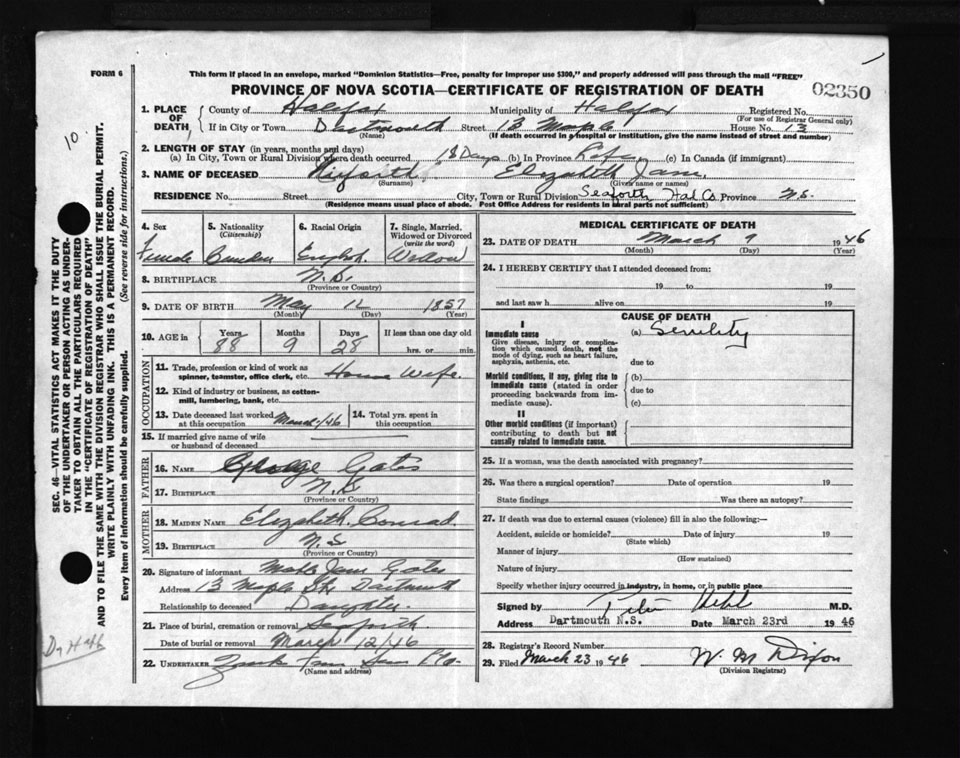 FORM 6
This form if placed in an envelope, marked "Dominion Statistics—Free, penalty for improper use $300," and properly addressed will pass through the mail "FREE"
PROVINCE OF NOVA SCOTIA—CERTIFICATE OF REGISTRATION OF DEATH
02350
1. PLACE OF DEATH
County of Halifax Municipality of Halifax Registered No.
(For use of Registrar General only)
If in City or Town Dartmouth Street 13 Maple House No. 13
(Name) (If death occurred in a hospital or institution, give the name instead of street and number)
2. LENGTH OF STAY (in years, months and days)
(a) In City, Town or Rural Division where death occurred 18 Days (b) In Province Life (c) In Canada (if immigrant)
3. NAME OF DECEASED Elizabeth Jane
(Surname) (Given name or names)
RESIDENCE No. Street City, Town or Rural Division Seaforth Hal. Co. Province N.S.
(Residence means usual place of abode. Post Office Address for residents in rural parts not sufficient)
4. Sex
Female
5. Nationality
(Citizenship)
6. Racial Origin
English
7. Single, Married, Widowed or Divorced
(write the word)
Widow
8. BIRTHPLACE N.S.
(Province or Country)
9. DATE OF BIRTH May 12 1857
(Month) (Day) (Year)
10. AGE in
Years Months Days If less than one day old
88 9 28 hrs. or min.
OCCUPATION
11. Trade, profession or kind of work as
spinner, teamster, office clerk, etc. House Wife.
12. Kind of industry or business, as cotton-
mill, lumbering, bank, etc.
13. Date deceased last worked
at this occupation March/46
14. Total yrs. spent in
this occupation
15. If married give name of wife
or husband of deceased
FATHER
16. NAME George Gates
17. BIRTHPLACE N.S.
(Province or Country)
MOTHER
18. MAIDEN NAME Elizabeth Conrad.
19. BIRTHPLACE N.S
(Province or Country)
20. Signature of informant Jane Gates
Address 13 Maple St. Dartmouth
Relationship to deceased Daughter.
21. Place of burial, cremation or removal Seaforth
Date of burial or removal March 12/46
22. UNDERTAKER
(Name and address)
MEDICAL CERTIFICATE OF DEATH
23. DATE OF DEATH March 9 1946
(Month) (Day) (Year)
24. I HEREBY CERTIFY that I attended deceased from:
19 to 19
and last saw h alive on 19
CAUSE OF DEATH
I
Immediate cause
Give disease, injury or complication which caused death, not the mode of dying, such as heart failure, asphyxia, asthenia, etc.
(a) Senility
due to
Morbid conditions, if any, giving rise to immediate cause (stated in order proceeding backwards from immediate cause).
(b)
due to
(c)
II
Other morbid conditions (if important) contributing to death but not causally related to immediate cause.
25. If a woman, was the death associated with pregnancy?
26. Was there a surgical operation? Date of operation 19
State findings Was there an autopsy?
27. If death was due to external causes (violence) fill in also the following:—
Accident, suicide or homicide? Date of injury 19
(State which)
Manner of injury
(How sustained)
Nature of injury
Specify whether injury occurred in industry, in home, or in public place
Signed by M.D.
Address Dartmouth N.S. Date March 23rd 1946
28. Registrar's Record Number
29. Filed March 23 1946 W. M Dixon
(Division Registrar)
SEC. 46—VITAL STATISTICS ACT MAKES IT THE DUTY
OF THE UNDERTAKER OR PERSON ACTING AS UNDER-
TAKER TO OBTAIN ALL THE PARTICULARS REQUIRED
IN THE "CERTIFICATE OF REGISTRATION OF DEATH"
AND TO FILE THE SAME WITH THE DIVISION REGISTRAR WHO SHALL ISSUE THE BURIAL PERMIT.
WRITE PLAINLY WITH UNFADING INK. THIS IS A PERMANENT RECORD.
Every item of information should be carefully supplied. (See reverse side for instructions.)
10.